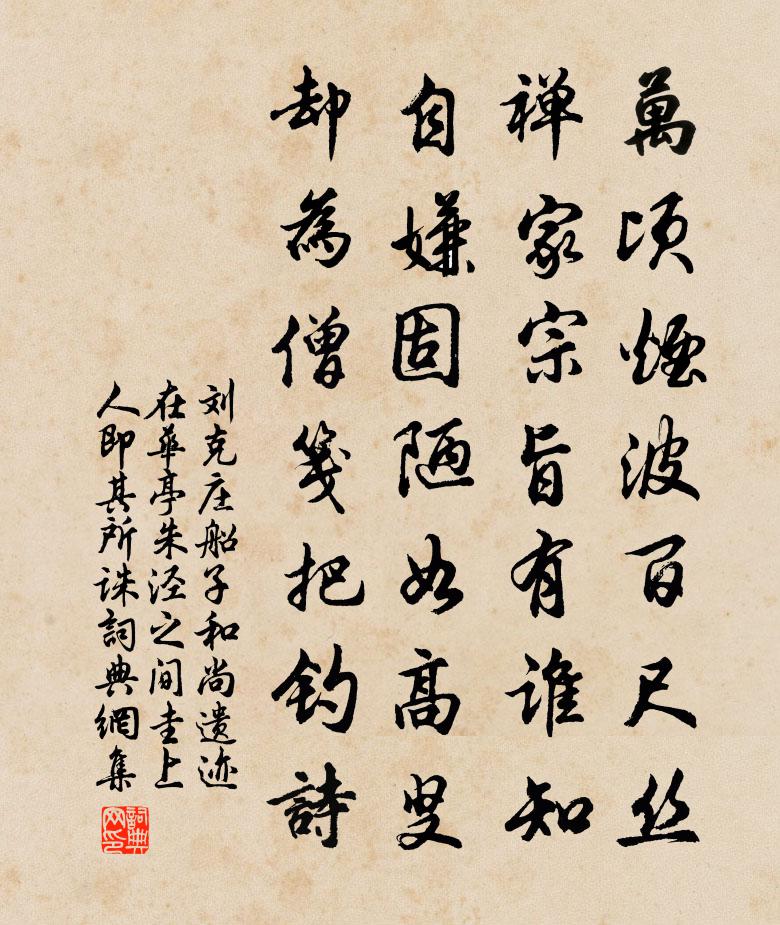 萬頃煙波百尺丝
禅家宗旨有谁知
自嫌固陋如高叟
却為僧箋把钓詩
刘克庄船子和尚遗迹
在華亭朱泾之间圭上
人即其所诛詞典網集
詞典网印